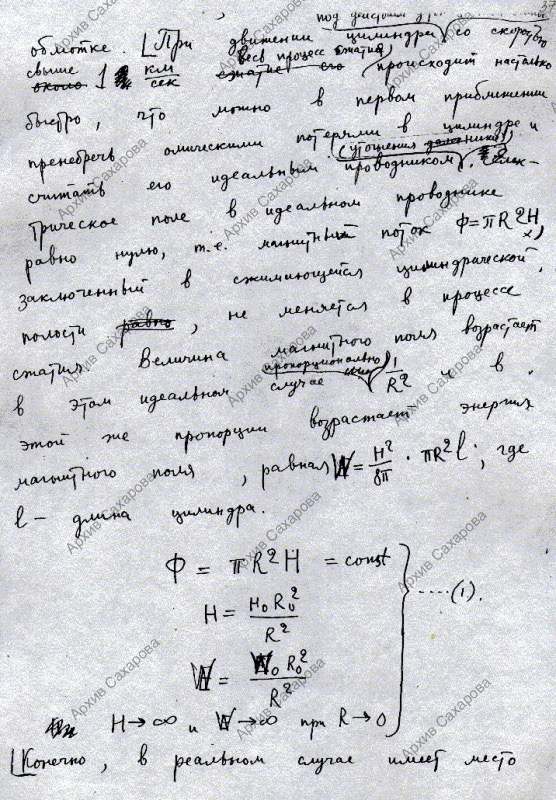 37
под действием
обмотке. При движении цилиндра со скоростью
весь процесс сжатия
свыше 1 км/сек происходит настолько
быстро, что можно в первом приближении
пренебречь омическими потерями в цилиндре и
считать его идеальным проводником. Элек-
трическое поле в идеальном проводнике
равно нулю, т.е. магнитный поток Φ=πR²H,
заключенный в сжимающейся цилиндрической
полости, не меняется в процессе
сжатия. Величина магнитного поля возрастает
в этом идеальном случае пропорционально 1/R² и в
этой же пропорции возрастает энергия
магнитного поля, равная W = H²/8π · πR²l, где
l – длина цилиндра.
Φ = πR²H = const
H = H₀R₀²/R² .....(1).
W = W₀R₀²/R²
H→∞ и W→∞ при R→0
Конечно, в реальном случае имеет место
Архив Сахарова